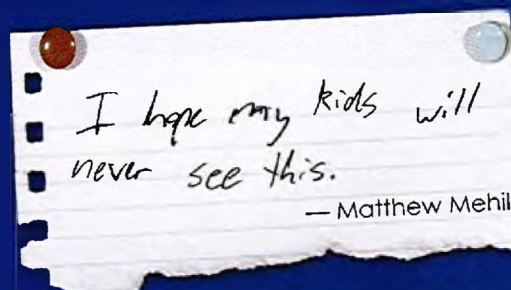 I hope my kids will
never see this.
— Matthew Mehil